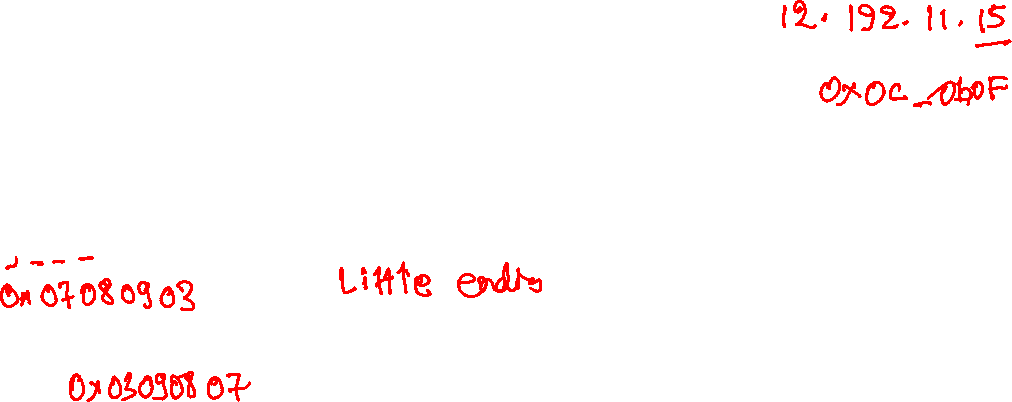 12. 192. 11. 15
0x0C_0b0F
0x07080903
Little
0x03090807